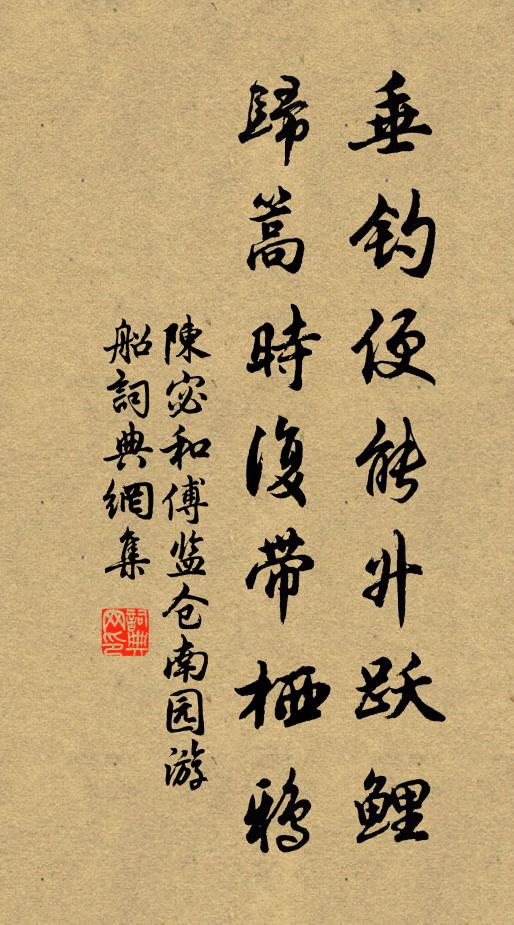 垂钓便能升跃鲤
歸篙時復帶栖鴉
陳宓和傅监仓南园游
船詞典網集
詞典网印